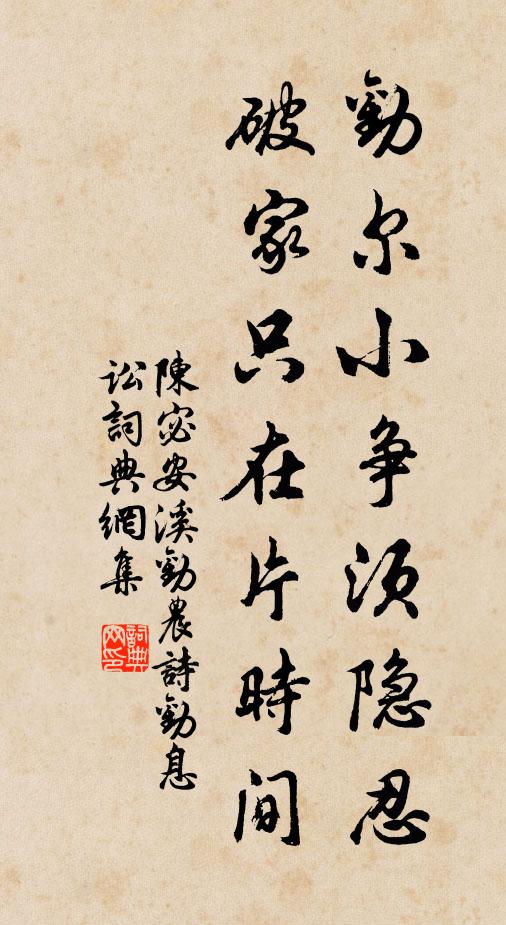 勸尔小争須隐忍
破家只在片時間
陳宓安溪勸農詩勸息
訟詞典網集
詞典網印